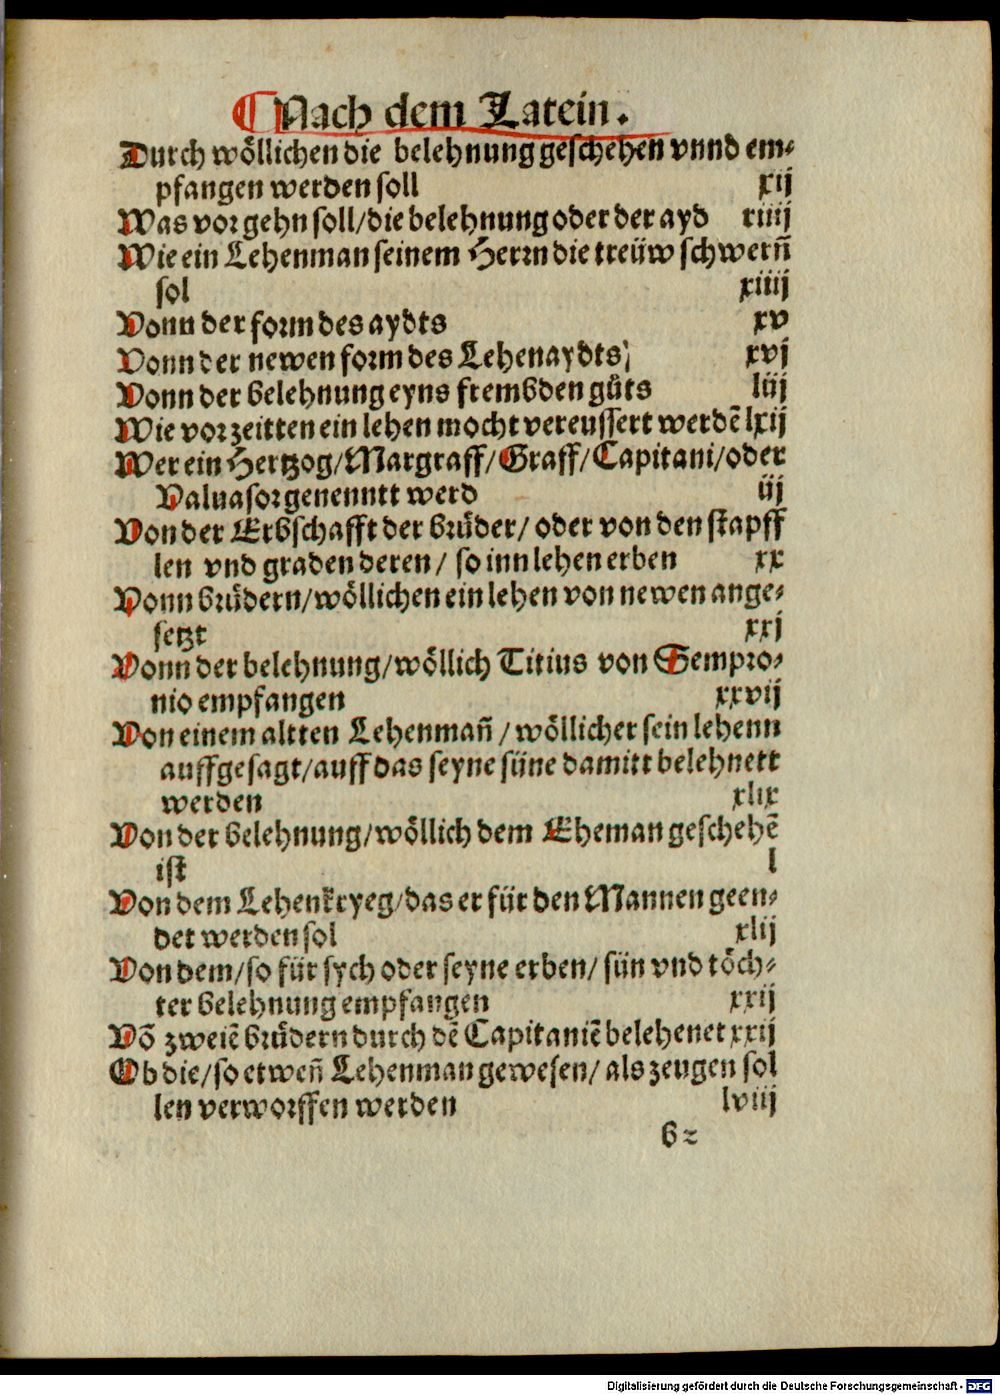 ¶Nach dem Latein.
Durch wöllichen die belehnung geschehen vnnd em⸗
pfangen werden soll xij
Was vor gehn soll/die belehnung oder der ayd xiiij
Wie ein Lehenman seinem Herrn die treüw schwern̄
sol xiiij
Vonn der form des aydts xv
Vonn der newen form des Lehenaydts; xvj
Vonn der belehnung eyns frembden gůts liij
Wie vor zeitten ein lehen mocht vereussert werdē lxij
Wer ein Hertzog/Margraff/Graff/Capitani/oder
Valuasor genenntt werd iij
Von der Erbschafft der brůder/ oder von den stapff
len vnd graden deren/ so inn lehen erben xx
Vonn brůdern/wöllichen ein lehen von newen ange⸗
setzt xxj
Vonn der belehnung/wöllich Titius von Sempro⸗
nio empfangen xxvij
Von einem altten Lehenman̄ /wöllicher sein lehenn
auffgesagt/auff das seyne süne damitt belehnett
werden xlix
Von der belehnung/wöllich dem Eheman geschehē
ist l
Von dem Lehenkryeg/das er für den Mannen geen⸗
det werden sol xlij
Von dem/so für sych oder seyne erben/ sün vnd töch⸗
ter belehnung empfangen xxij
Vō zweiē brůdern durch dē Capitaniē belehenet xxij
Ob die/so etwen̄ Lehenman gewesen/ als zeugen sol
len verworffen werden lviij
b2
Digitalisierung gefördert durch die Deutsche Forschungsgemeinschaft - DFG